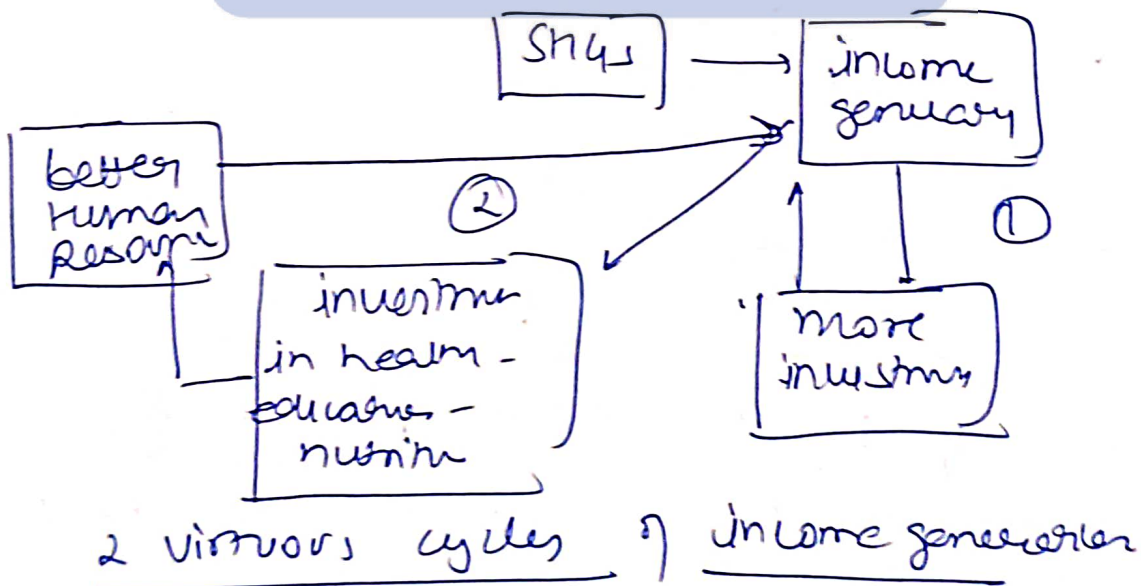 SHGs
income
generation
better
Human
Resource
②
①
investment
in health -
education -
nutrition
more
investment
2 virtuous cycles of income generation